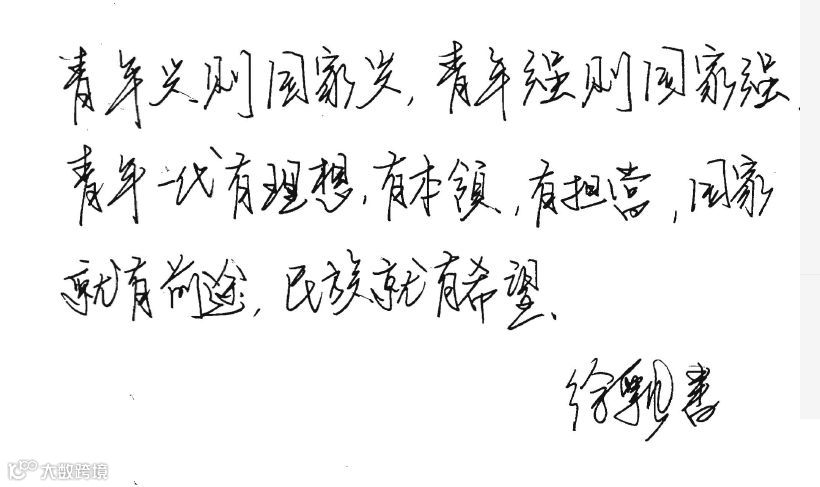 青年兴则国家兴,青年强则国家强,
青年一代有理想,有本領,有担当,国家
就有前途,民族就有希望、
徐飘書
大数跨境